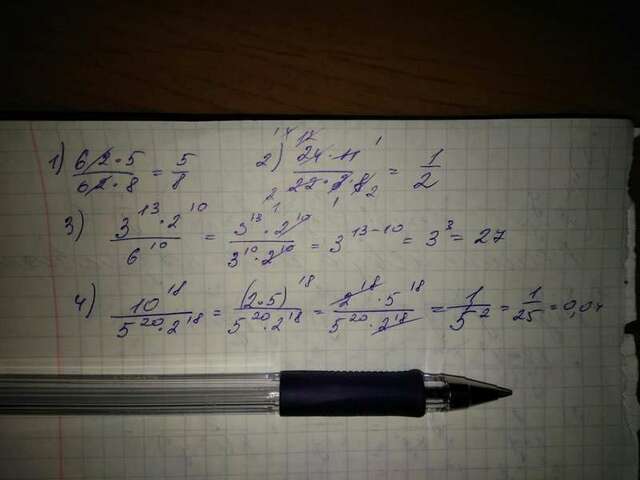 1) 62·5/62·8 = 5/8 2) 24·11/22· = 1/2
3) 3^13·2^10/6^10 = 3^13·2^10/3^10·2^10 = 3^13-10 = 3^3 = 27
4) 10^18/5^20·2^18 = (2·5)^18/5^20·2^18 = 2^18·5^18/5^20·2^18 = 1/5^2 = 1/25 = 0,04